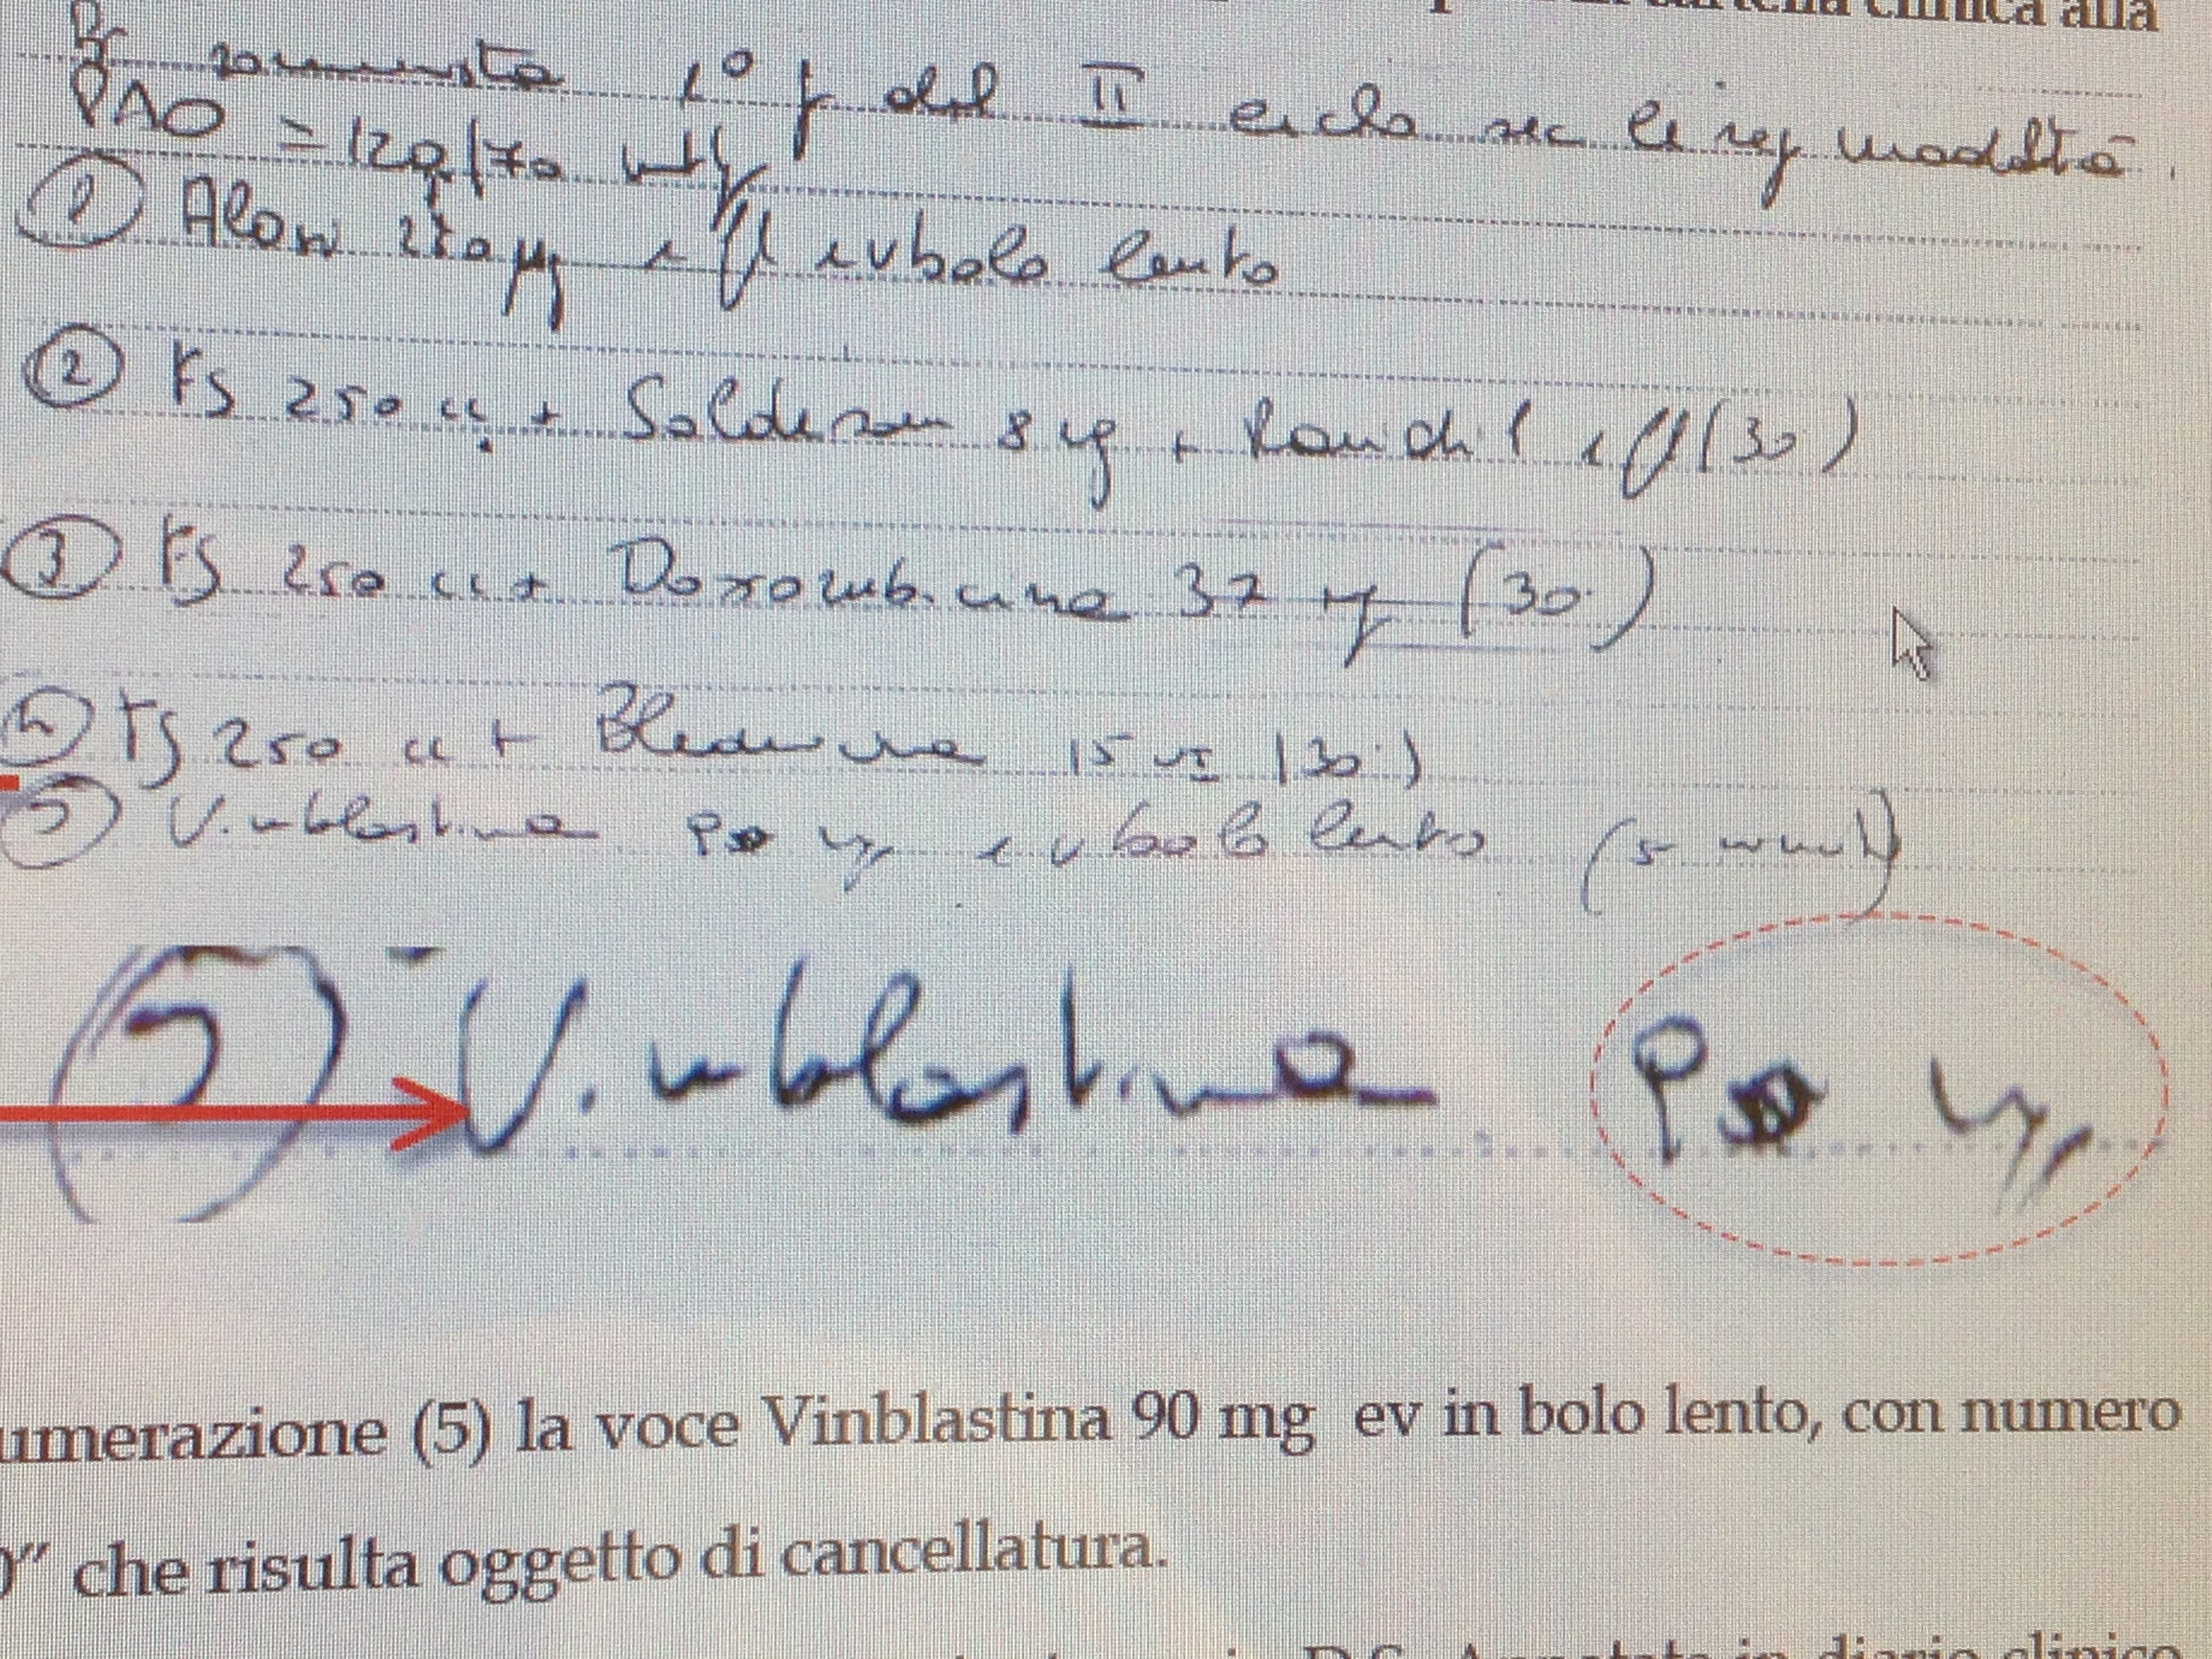 clinica alla
1° g del II ciclo sec le seg modalità.
PAO = 120/70 mmHg
① Aloxi 250 µg 1 fl ev bolo lento
② FS 250 cc + Soldesam 8 mg + Ranidil 1 fl (30')
③ FS 250 cc + Doxorubicina 37 mg (30')
④ FS 250 cc + Bleomicina 15 UI (30')
⑤ Vinblastina 9 mg ev bolo lento (5 minuti)
⑤ Vinblastina 9 mg
umerazione (5) la voce Vinblastina 90 mg ev in bolo lento, con numero
)" che risulta oggetto di cancellatura.
in diario clinico